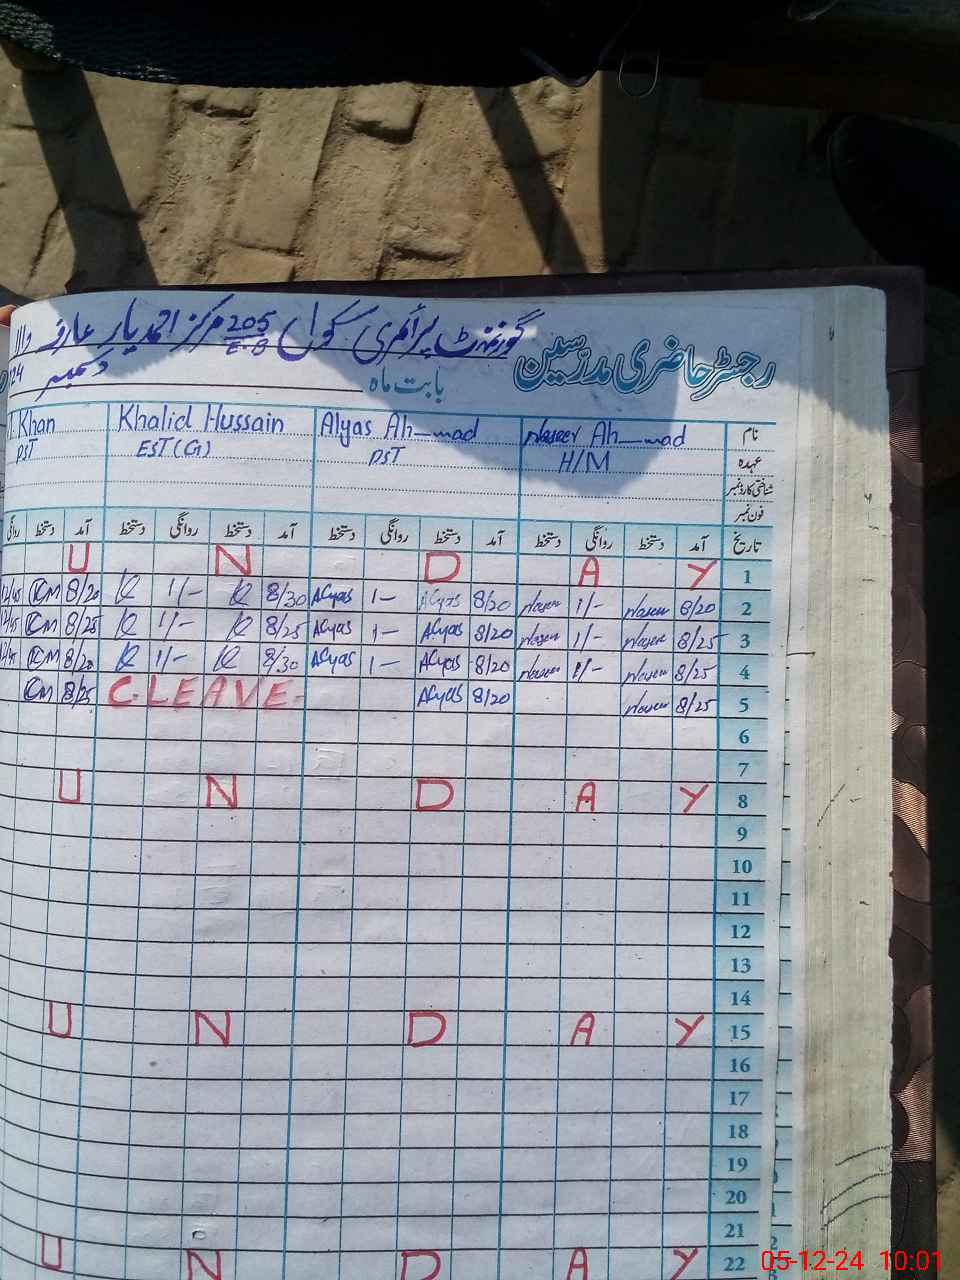 گورنمنٹ پرائمری سکول 205 E.B مرکز احمد یار عارف والا
رجسٹر حاضری مدرسین
بابت ماہ دسمبر 24
نام Naseer Ah_mad Alyas Ah_mad Khalid Hussain Khan
عہدہ H/M PST EST(G) PST
شناختی کارڈ نمبر
فون نمبر
تاریخ آمد دستخط روانگی دستخط آمد دستخط روانگی دستخط آمد دستخط روانگی دستخط آمد دستخط
U N D A Y 1
CM 8/20 K 1/- K 8/30 Alyas 1- Alyas 8/20 Naseer 1/- Naseer 8/20 2
CM 8/25 K 1/- K 8/25 Alyas 1- Alyas 8/20 Naseer 1/- Naseer 8/25 3
CM 8/20 K 1/- K 8/30 Alyas 1- Alyas 8/20 Naseer 1/- Naseer 8/25 4
CM 8/25 C-LEAVE- Alyas 8/20 Naseer 8/25 5
6
7
U N D A Y 8
9
10
11
12
13
14
U N D A Y 15
16
17
18
19
20
21
U N D A Y 22
05-12-24 10:01